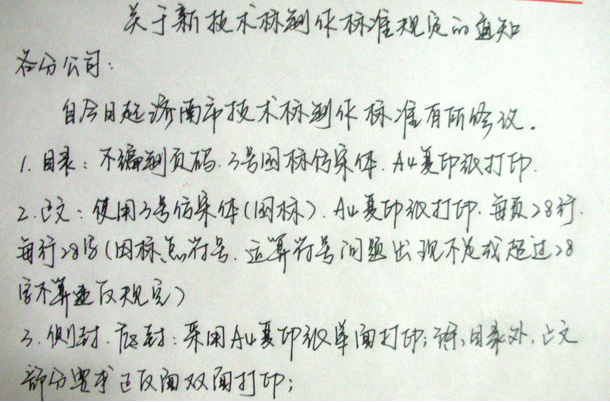 关于新技术标制作标准规定的通知
各分公司：
自今日起济南市技术标制作标准有所修改.
1. 目录：不编制页码.3号国标仿宋体.A4复印纸打印.
2.正文：使用3号仿宋体(国标).A4复印纸打印.每页28行.
每行28字(因标点符号.运算符号问题出现不足或超过28
字不算违反规定)
3.侧封.底封：采用A4复印纸单面打印;除目录外.正文
部分要求正反面双面打印;